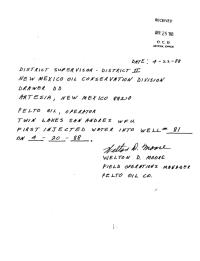 RECEIVED
APR 25 '88
O. C. D.
ARTESIA, OFFICE
DATE: 4-22-88
DISTRICT SUPERVISOR - DISTRICT II
NEW MEXICO OIL CONSERVATION DIVISION
DRAWER DD
ARTESIA, NEW MEXICO 88210
PELTO OIL, OPERATOR
TWIN LAKES SAN ANDRES UNIT
FIRST INJECTED WATER INTO WELL # 81
ON 4 - 20 - 88 .
Welton D. Moore
WELTON D. MOORE
FIELD OPERATIONS MANAGER
PELTO OIL CO.